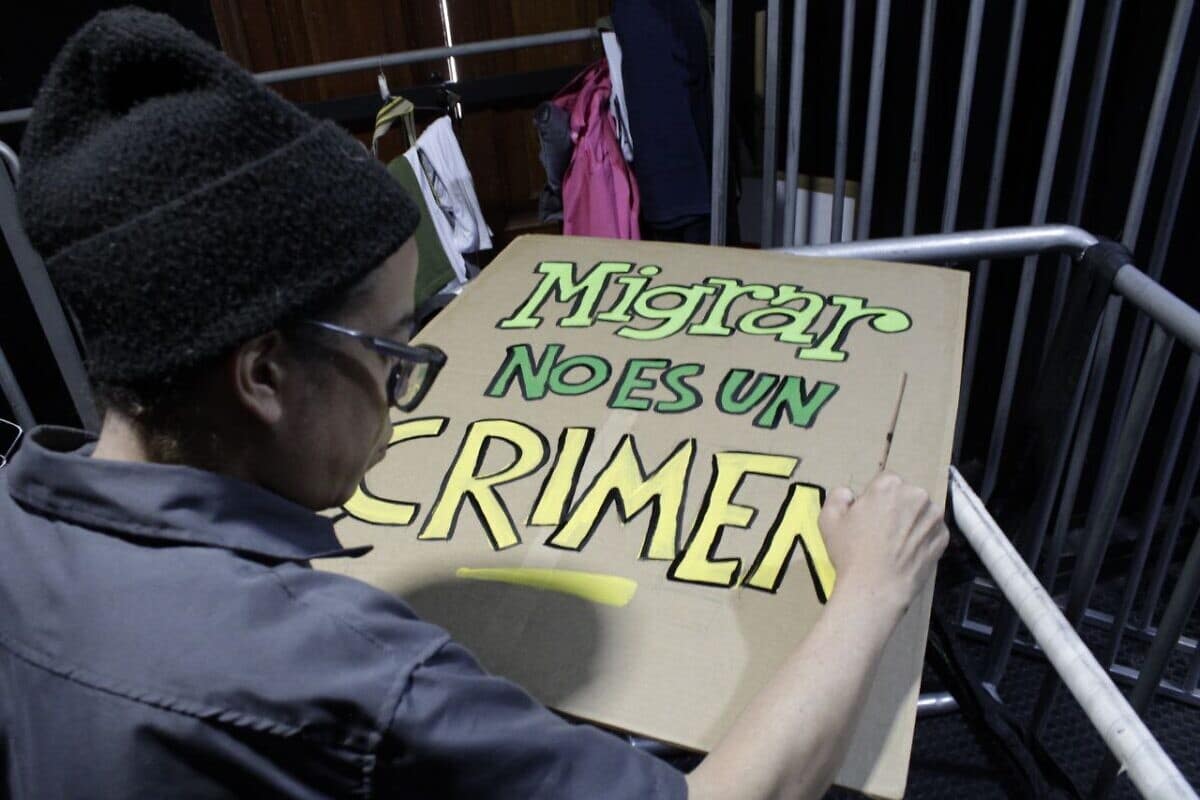 Migrar
NO ES UN
CRIMEN